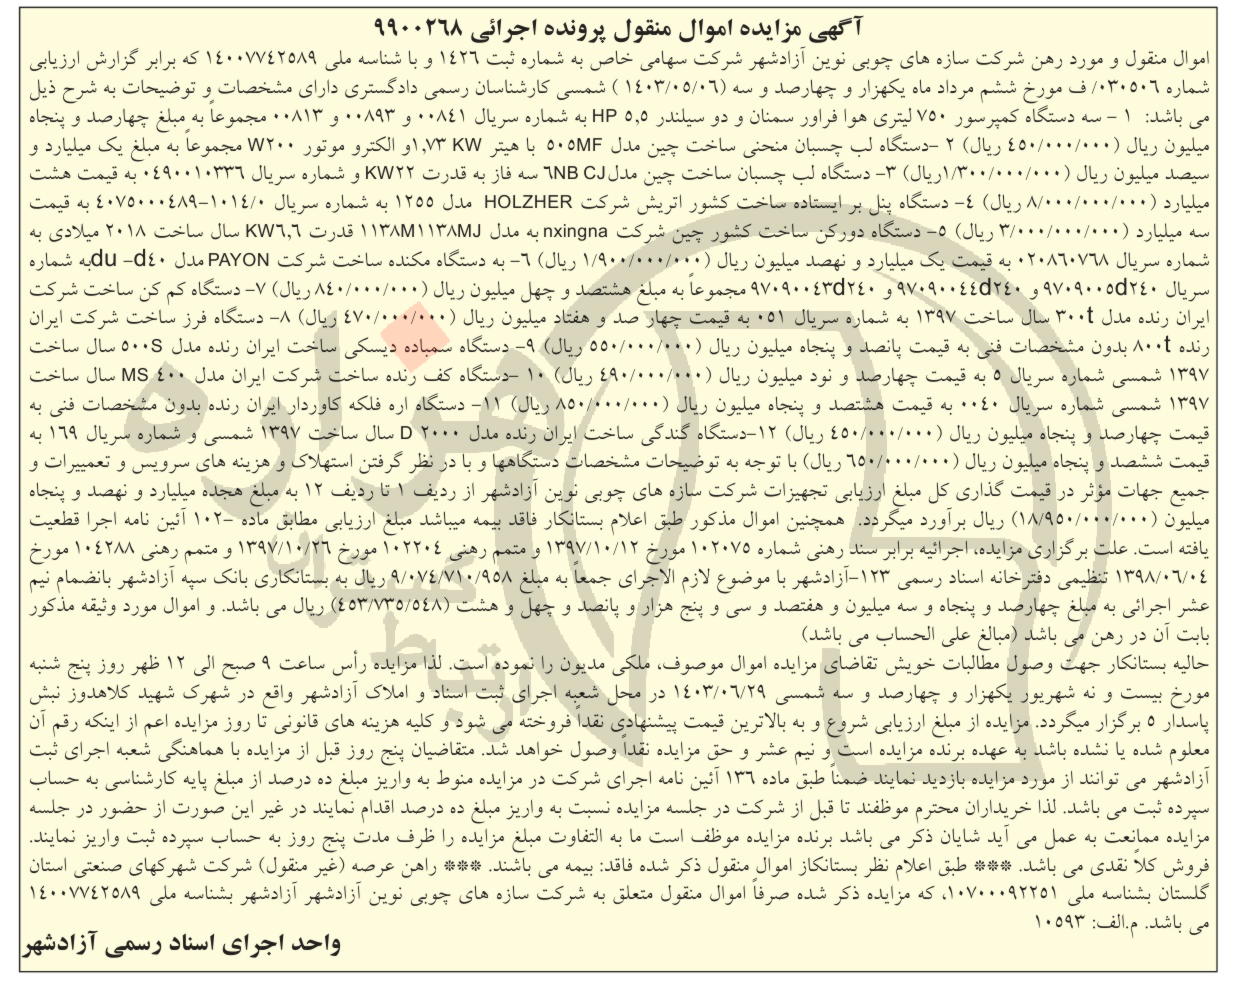 آگهی مزایده اموال منقول پرونده اجرائی ۹۹۰۰۲۶۸
اموال منقول و مورد رهن شرکت سازه های چوبی نوین آزادشهر شرکت سهامی خاص به شماره ثبت ۱۴۲۶ و با شناسه ملی ۱۴۰۰۷۷۴۲۵۸۹ که برابر گزارش ارزیابی
شماره ۰۳۰۵۰۶/ ف مورخ ششم مرداد ماه یکهزار و چهارصد و سه (۱۴۰۳/۰۵/۰۶ ) شمسی کارشناسان رسمی دادگستری دارای مشخصات و توضیحات به شرح ذیل
می باشد: ۱ – سه دستگاه کمپرسور ۷۵۰ لیتری هوا فراور سمنان و دو سیلندر ۵٫۵ HP به شماره سریال ۰۰۸۴۱ و ۰۰۸۹۳ و ۰۰۸۱۳ مجموعاً به مبلغ چهارصد و پنجاه
میلیون ریال (۴۵۰/۰۰۰/۰۰۰ ریال) ۲ –دستگاه لب چسبان منحنی ساخت چین مدل ۵۰۵MF با هیتر ۱٫۷۳ KW و الکترو موتور W۲۰۰ مجموعاً به مبلغ یک میلیارد و
سیصد میلیون ریال (۱/۳۰۰/۰۰۰/۰۰۰ریال) ۳- دستگاه لب چسبان ساخت چین مدل۶NB CJ سه فاز به قدرت KW۲۲ و شماره سریال ۰۴۹۰۰۱۰۳۳۶ به قیمت هشت
میلیارد (۸/۰۰۰/۰۰۰/۰۰۰ ریال) ۴- دستگاه پنل بر ایستاده ساخت کشور اتریش شرکت HOLZHER مدل ۱۲۵۵ به شماره سریال ۱۰۱۴/۰–۴۰۷۵۰۰۰۴۸۹ به قیمت
سه میلیارد (۳/۰۰۰/۰۰۰/۰۰۰ ریال) ۵- دستگاه دورکن ساخت کشور چین شرکت nxingna به مدل ۱۱۳۸M۱۱۳۸MJ قدرت KW۶٫۶ سال ساخت ۲۰۱۸ میلادی به
شماره سریال ۰۲۰۸۶۰۷۶۸ به قیمت یک میلیارد و نهصد میلیون ریال (۱/۹۰۰/۰۰۰/۰۰۰ ریال) ۶- به دستگاه مکنده ساخت شرکت PAYON مدل du –d۴۰به شماره
سریال ۹۷۰۹۰۰۵d۲۴۰ و ۹۷۰۹۰۰۴۴d۲۴۰ و ۹۷۰۹۰۰۴۳d۲۴۰ مجموعاً به مبلغ هشتصد و چهل میلیون ریال (۸۴۰/۰۰۰/۰۰۰ ریال) ۷- دستگاه کم کن ساخت شرکت
ایران رنده مدل ۳۰۰t سال ساخت ۱۳۹۷ به شماره سریال ۰۵۱ به قیمت چهار صد و هفتاد میلیون ریال (۴۷۰/۰۰۰/۰۰۰ ریال) ۸- دستگاه فرز ساخت شرکت ایران
رنده ۸۰۰t بدون مشخصات فنی به قیمت پانصد و پنجاه میلیون ریال (۵۵۰/۰۰۰/۰۰۰ ریال) ۹- دستگاه سمباده دیسکی ساخت ایران رنده مدل ۵۰۰S سال ساخت
۱۳۹۷ شمسی شماره سریال ۵ به قیمت چهارصد و نود میلیون ریال (۴۹۰/۰۰۰/۰۰۰ ریال) ۱۰ –دستگاه کف رنده ساخت شرکت ایران مدل MS ۴۰۰ سال ساخت
۱۳۹۷ شمسی شماره سریال ۰۰۴۰ به قیمت هشتصد و پنجاه میلیون ریال (۸۵۰/۰۰۰/۰۰۰ ریال) ۱۱- دستگاه اره فلکه کاوردار ایران رنده بدون مشخصات فنی به
قیمت چهارصد و پنجاه میلیون ریال (۴۵۰/۰۰۰/۰۰۰ ریال) ۱۲-دستگاه گندگی ساخت ایران رنده مدل D ۲۰۰۰ سال ساخت ۱۳۹۷ شمسی و شماره سریال ۱۶۹ به
قیمت ششصد و پنجاه میلیون ریال (۶۵۰/۰۰۰/۰۰۰ ریال) با توجه به توضیحات مشخصات دستگاهها و با در نظر گرفتن استهلاک و هزینه های سرویس و تعمییرات و
جمیع جهات مؤثر در قیمت گذاری کل مبلغ ارزیابی تجهیزات شرکت سازه های چوبی نوین آزادشهر از ردیف ۱ تا ردیف ۱۲ به مبلغ هجده میلیارد و نهصد و پنجاه
میلیون (۱۸/۹۵۰/۰۰۰/۰۰۰) ریال برآورد میگردد. همچنین اموال مذکور طبق اعلام بستانکار فاقد بیمه میباشد مبلغ ارزیابی مطابق ماده –۱۰۲ آئین نامه اجرا قطعیت
یافته است. علت برگزاری مزایده، اجرائیه برابر سند رهنی شماره ۱۰۲۰۷۵ مورخ ۱۳۹۷/۱۰/۱۲ و متمم رهنی ۱۰۲۲۰۴ مورخ ۱۳۹۷/۱۰/۲۶ و متمم رهنی ۱۰۴۲۸۸ مورخ
۱۳۹۸/۰۶/۰۴ تنظیمی دفترخانه اسناد رسمی ۱۲۳-آزادشهر با موضوع لازم الاجرای جمعاً به مبلغ ۹/۰۷۴/۷۱۰/۹۵۸ ریال به بستانکاری بانک سپه آزادشهر بانضمام نیم
عشر اجرائی به مبلغ چهارصد و پنجاه و سه میلیون و هفتصد و سی و پنج هزار و پانصد و چهل و هشت (۴۵۳/۷۳۵/۵۴۸) ریال می باشد. و اموال مورد وثیقه مذکور
بابت آن در رهن می باشد (مبالغ علی الحساب می باشد)
حالیه بستانکار جهت وصول مطالبات خویش تقاضای مزایده اموال موصوف، ملکی مدیون را نموده است. لذا مزایده رأس ساعت ۹ صبح الی ۱۲ ظهر روز پنج شنبه
مورخ بیست و نه شهریور یکهزار و چهارصد و سه شمسی ۱۴۰۳/۰۶/۲۹ در محل شعبه اجرای ثبت اسناد و املاک آزادشهر واقع در شهرک شهید کلاهدوز نبش
پاسدار ۵ برگزار میگردد. مزایده از مبلغ ارزیابی شروع و به بالاترین قیمت پیشنهادی نقداً فروخته می شود و کلیه هزینه های قانونی تا روز مزایده اعم از اینکه رقم آن
معلوم شده یا نشده باشد به عهده برنده مزایده است و نیم عشر و حق مزایده نقداً وصول خواهد شد. متقاضیان پنج روز قبل از مزایده با هماهنگی شعبه اجرای ثبت
آزادشهر می توانند از مورد مزایده بازدید نمایند ضمناً طبق ماده ۱۳۶ آئین نامه اجرای شرکت در مزایده منوط به واریز مبلغ ده درصد از مبلغ پایه کارشناسی به حساب
سپرده ثبت می باشد. لذا خریداران محترم موظفند تا قبل از شرکت در جلسه مزایده نسبت به واریز مبلغ ده درصد اقدام نمایند در غیر این صورت از حضور در جلسه
مزایده ممانعت به عمل می آید شایان ذکر می باشد برنده مزایده موظف است ما به التفاوت مبلغ مزایده را ظرف مدت پنج روز به حساب سپرده ثبت واریز نمایند.
فروش کلاً نقدی می باشد. *** طبق اعلام نظر بستانکاز اموال منقول ذکر شده فاقد: بیمه می باشند. *** راهن عرصه (غیر منقول) شرکت شهرکهای صنعتی استان
گلستان بشناسه ملی ۱۰۷۰۰۰۹۲۲۵۱، که مزایده ذکر شده صرفاً اموال منقول متعلق به شرکت سازه های چوبی نوین آزادشهر آزادشهر بشناسه ملی ۱۴۰۰۷۷۴۲۵۸۹
می باشد. م.الف: ۱۰۵۹۳
واحد اجرای اسناد رسمی آزادشهر